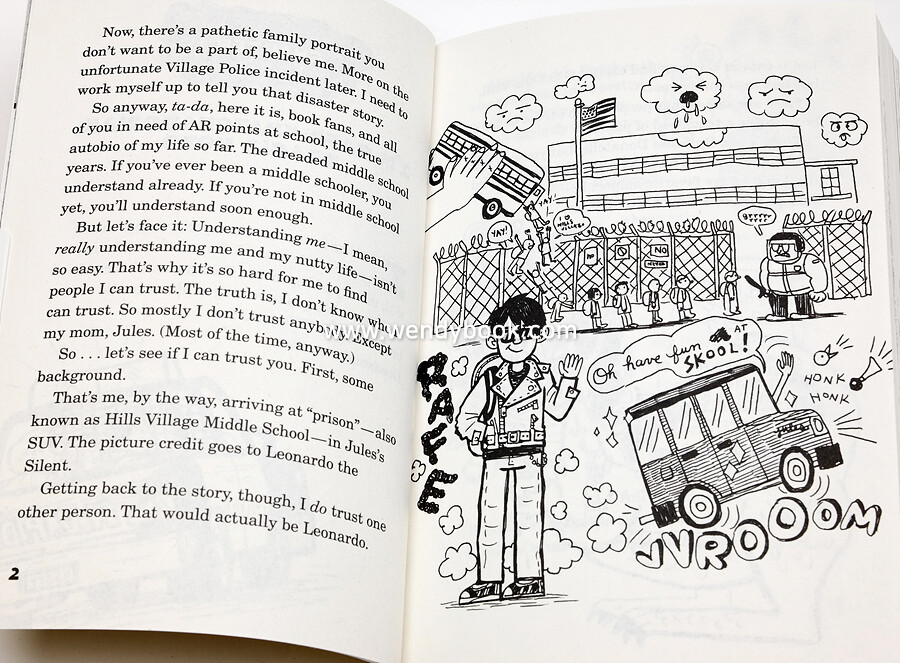 Now, there's a pathetic family portrait you
don't want to be a part of, believe me. More on the
unfortunate Village Police incident later. I need to
work myself up to tell you that disaster story.
So anyway, ta-da, here it is, book fans, and all
of you in need of AR points at school, the true
autobio of my life so far. The dreaded middle school
years. If you've ever been a middle schooler, you
understand already. If you're not in middle school
yet, you'll understand soon enough.
But let's face it: Understanding me—I mean,
really understanding me and my nutty life—isn't
so easy. That's why it's so hard for me to find
people I can trust. The truth is, I don't know who I
can trust. So mostly I don't trust anybody. Except
my mom, Jules. (Most of the time, anyway.)
So . . . let's see if I can trust you. First, some
background.
That's me, by the way, arriving at "prison"—also
known as Hills Village Middle School—in Jules's
SUV. The picture credit goes to Leonardo the
Silent.
Getting back to the story, though, I do trust one
other person. That would actually be Leonardo.
2
YAY!
YAY!
NO
RAFE
Oh have fun AT
SKOOL!
HONK
HONK
Jules
VVROOOOM
www.wendybook.com